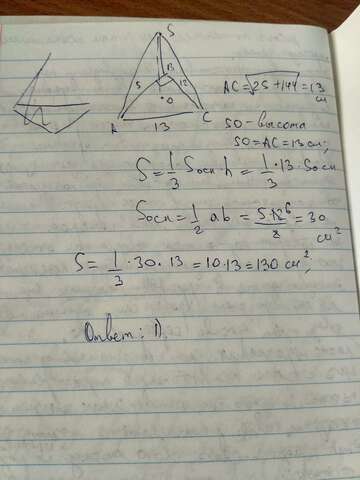 S
B
5
12
O
A
C
13
AC=√25+144=13 см
SO-высота
SO=AC=13 см;
S=1/3 Sосн·h=1/3·13·Sосн
Sосн=1/2 ab=5·12⁶/2=30 см²
S=1/3·30·13=10·13=130 см²;
Ответ: 1).